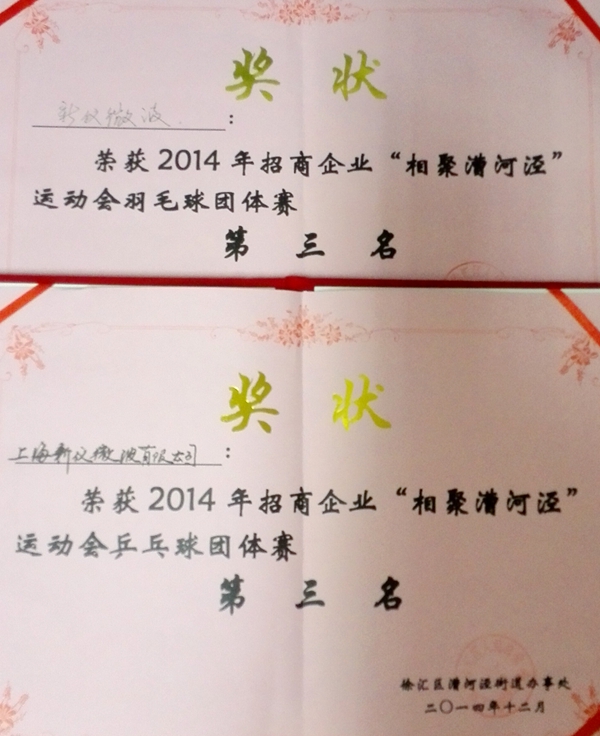 奖 状
新仪微波:
荣获2014年招商企业“相聚漕河泾”
运动会羽毛球团体赛
第 三 名
奖 状
上海新仪微波有限公司:
荣获2014年招商企业“相聚漕河泾”
运动会乒乓球团体赛
第 三 名
徐汇区漕河泾街道办事处
二〇一四年十二月